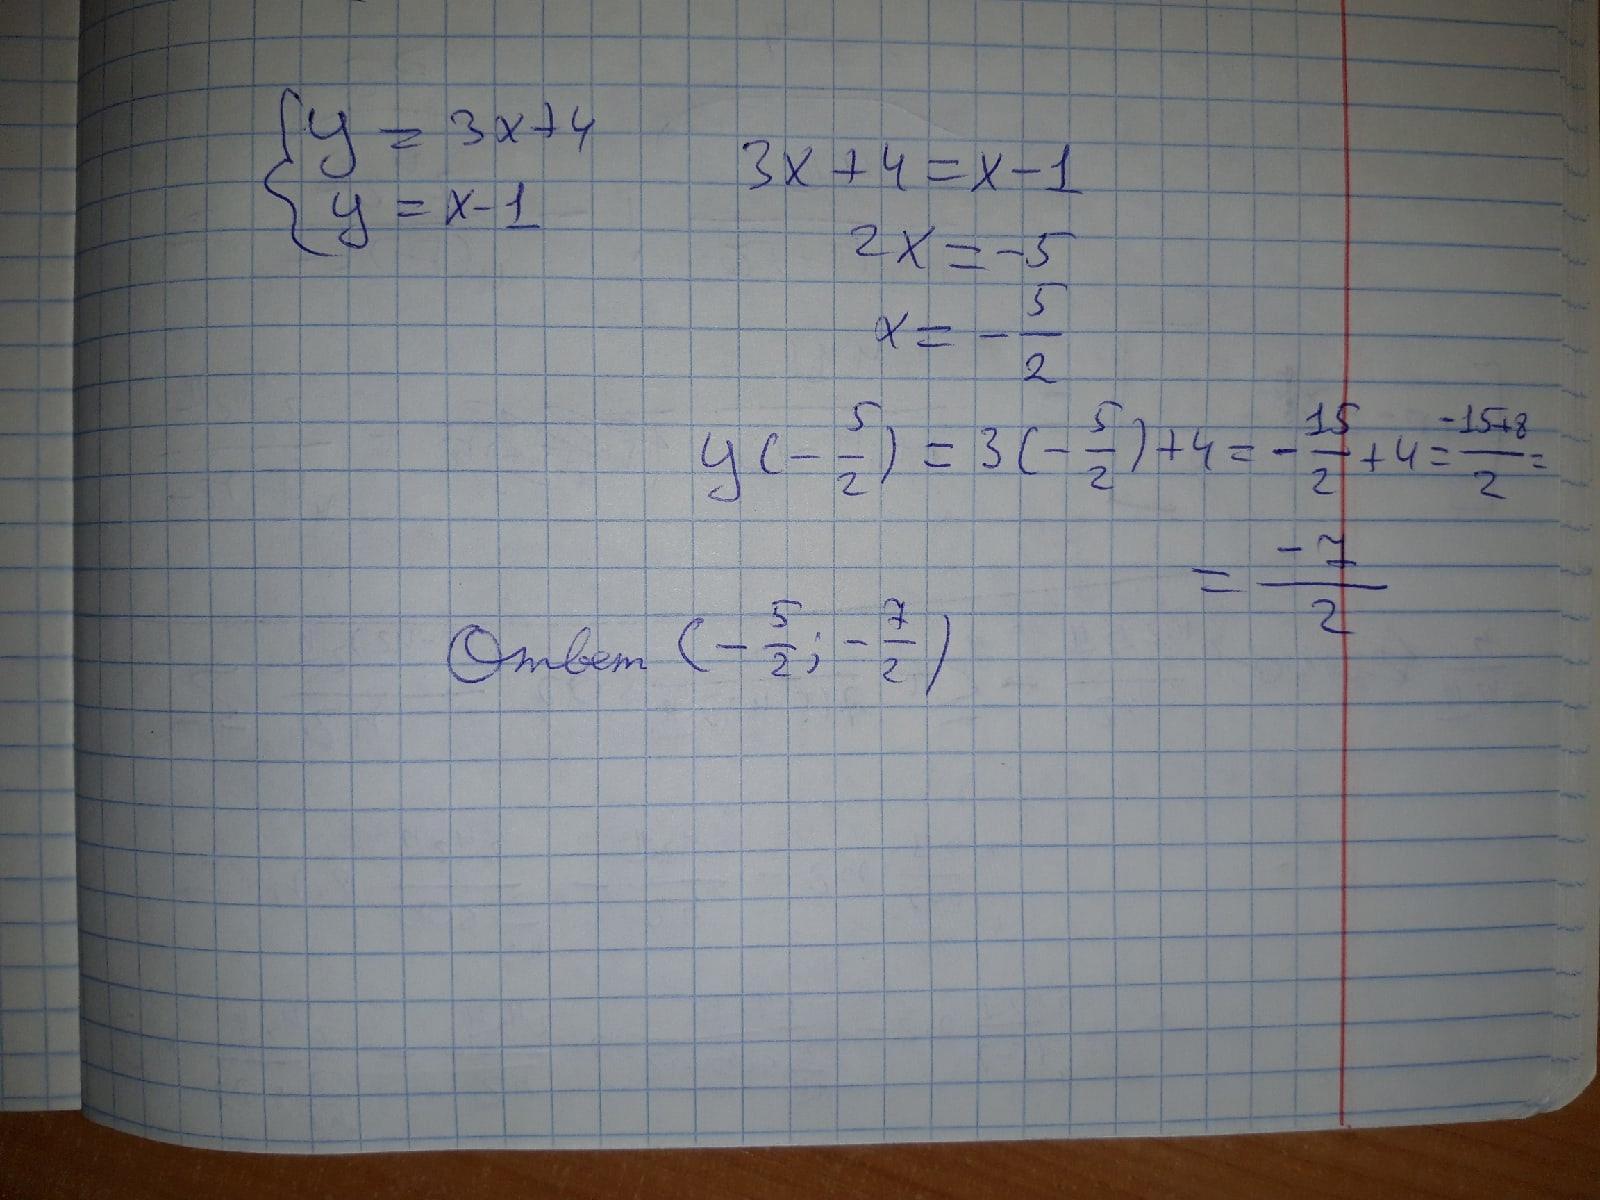 { y = 3x+4
y = x-1
3x+4=x-1
2x=-5
x=-5/2
y(-5/2) = 3(-5/2)+4=-15/2+4=-15+8/2=
=-7/2
Ответ (-5/2; -7/2)